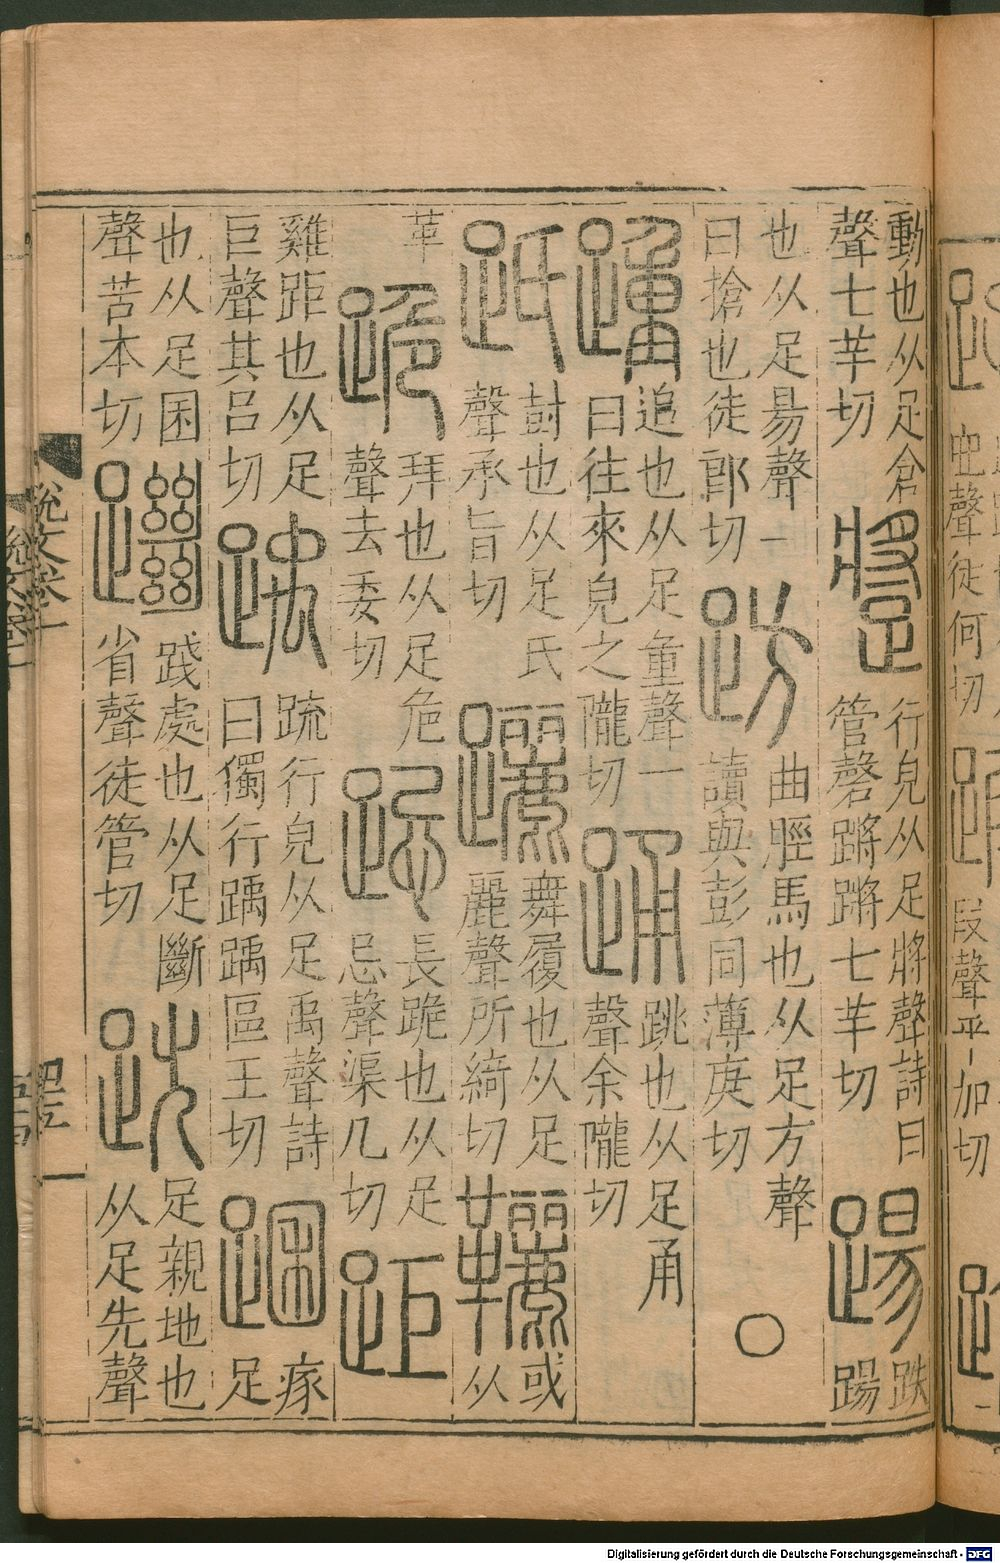 聲徒何切
叚聲平加切
動也从足倉
聲七羊切
蹡
行皃从足將聲詩曰
管磬蹡蹡七羊切
踼
跌
踼
也从足昜聲一
曰搶也徒郎切
趽
曲脛馬也从足方聲
讀與彭同薄庚切
○
踵
追也从足重聲一
曰往來皃之隴切
踊
跳也从足甬
聲余隴切
尌也从足氏
聲承旨切
躧
舞履也从足
麗聲所綺切
或
从
革
跪
拜也从足危
聲去委切
跽
長跪也从足
忌聲渠几切
距
雞距也从足
巨聲其呂切
踽
疏行皃从足禹聲詩
曰獨行踽踽區王切
瘃
足
也从足困
聲苦本切
躖
踐處也从足斷
省聲徒管切
跣
足親地也
从足先聲
說文卷
Digitalisierung gefördert durch die Deutsche Forschungsgemeinschaft - DFG